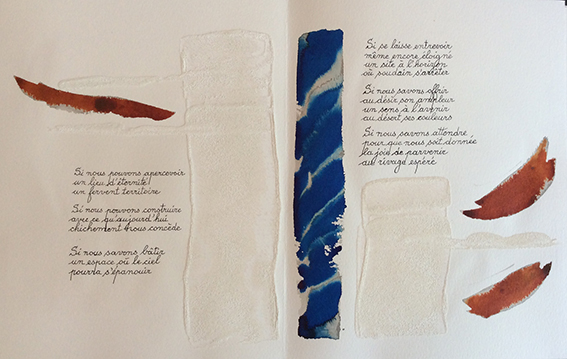 Si nous pouvons apercevoir
un lieu d'éternité
un fervent territoire
Si nous pouvons construire
avec ce qu'aujourd'hui
chichement nous concède
Si nous savons bâtir
un espace où le ciel
pourra s'épanouir
Si se laisse entrevoir
même encore éloigné
un site à l'horizon
où soudain s'arrêter
Si nous savons offrir
au désir son ampleur
un sens à l'avenir
au désert ses couleurs
Si nous savons attendre
pour que nous soit donnée
la joie de parvenir
au rivage espéré